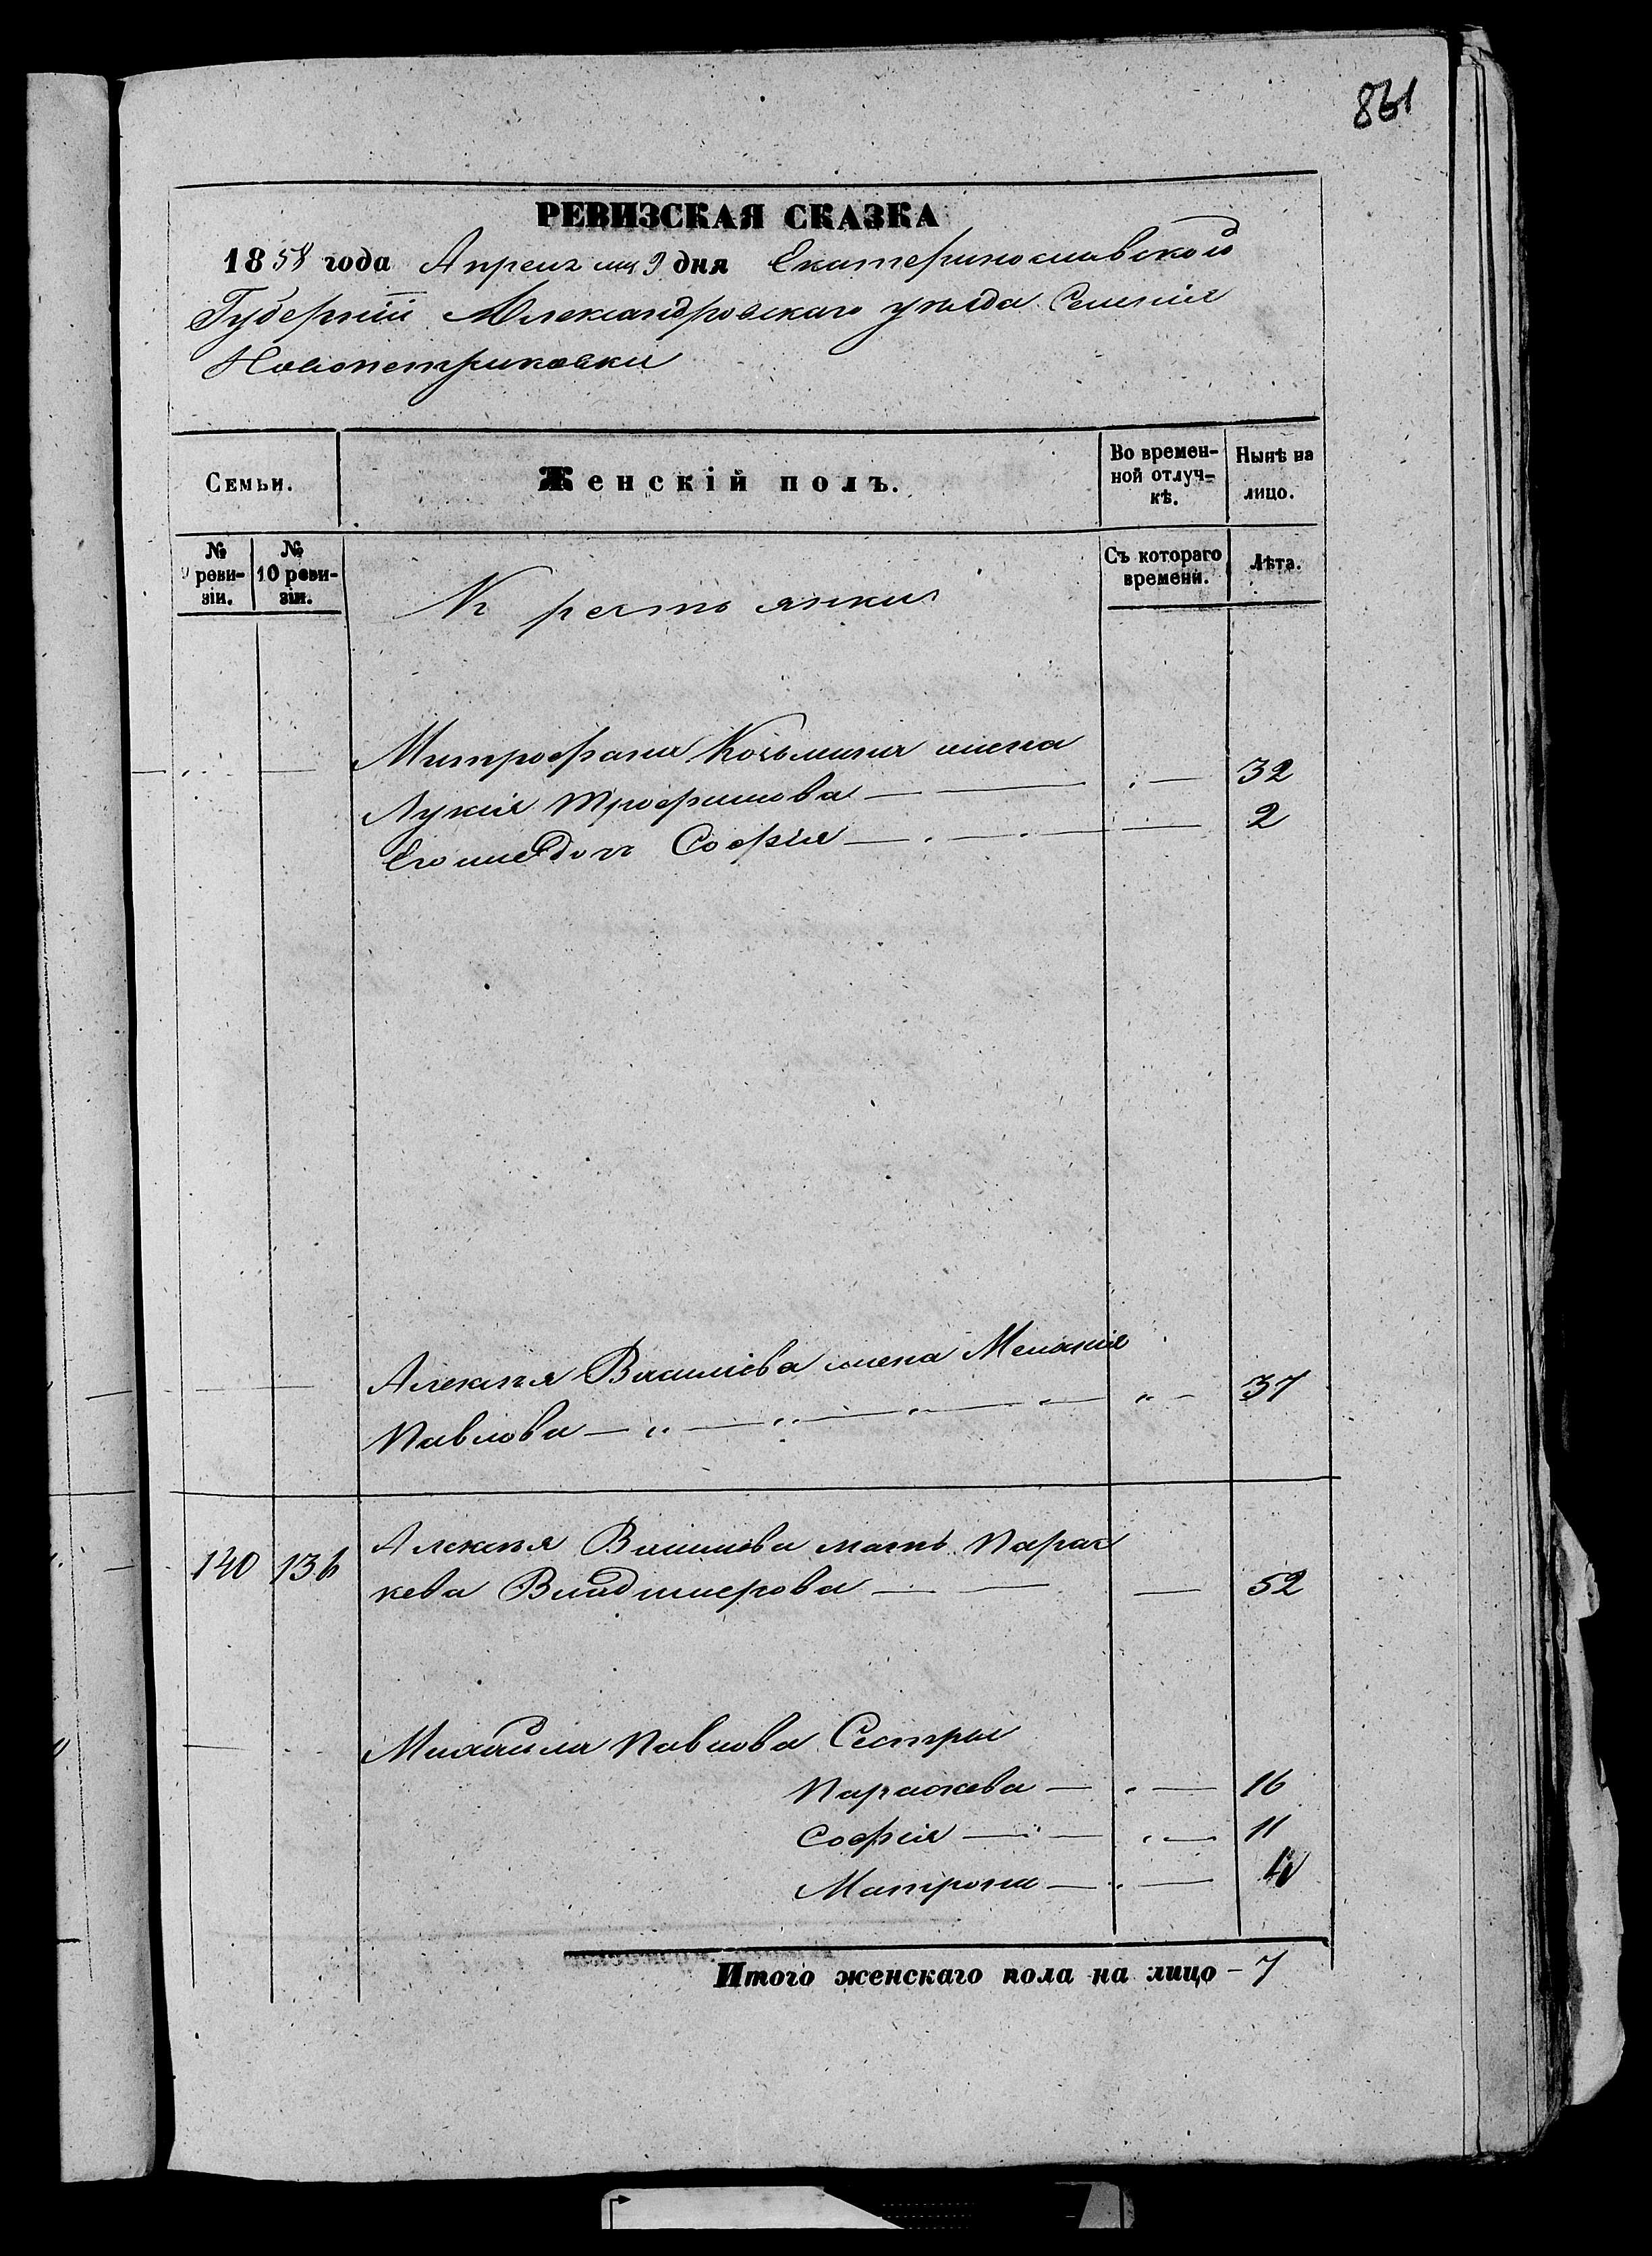 861
РЕВИЗСКАЯ СКАЗКА
1858 года Апреля мца 9 дня Екатеринославской
Губерніи Александровскаго уѣзда Селенія
Новопетриковки
Семьи.
Женскій полъ.
Во времен-
ной отлуч-
кѣ.
Нынѣ на
лицо.
№
реви-
зіи.
№
10 реви-
зіи.
Крестьянки
Съ котораго
времени.
Лѣта.
Митрофана Козьмина жена
Лукія Трофимова — — 32
Его же дочь София — — — 2
Алексѣя Василіева жена Меланія
Павлова — — — — 37
140 136 Алексѣя Василиева мать Парас
кева Владимерова — — — 52
Михайла Павлова Сестры
Параскева — — 16
София — — — 11
Матрона — — 4
Итого женскаго пола на лицо - 7